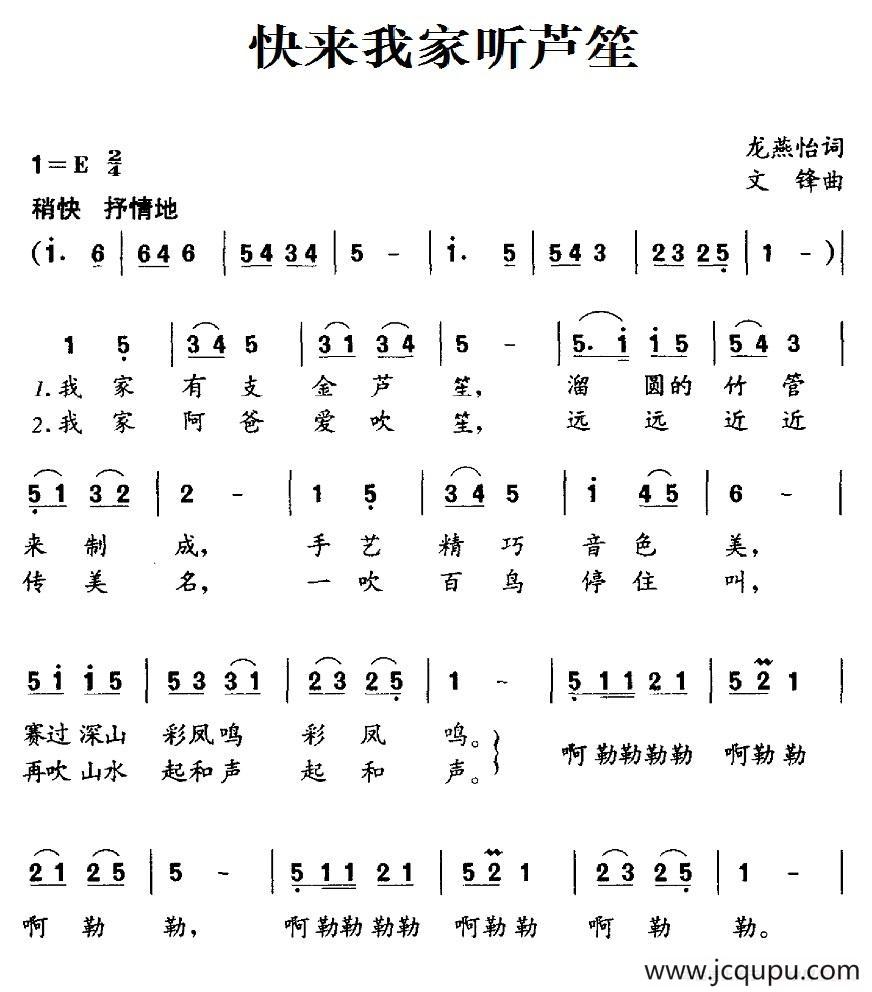 快来我家听芦笙
1=E 2/4
龙燕怡词
文 锋曲
稍快 抒情地
(i. 6 | 6 4 6 | 5 4 3 4 | 5 - | i. 5 | 5 4 3 | 2 3 2 5 | 1 - )|
1 5 | 3 4 5 | 3 1 3 4 | 5 - | 5. i i 5 | 5 4 3
1.我 家 有 支 金 芦 笙, 溜 圆的 竹 管
2.我 家 阿 爸 爱 吹 笙, 远 远 近 近
5 1 3 2 | 2 - | 1 5 | 3 4 5 | i 4 5 | 6 - |
来 制 成, 手 艺 精 巧 音 色 美,
传 美 名, 一 吹 百 鸟 停 住 叫,
5 i i 5 | 5 3 3 1 | 2 3 2 5 | 1 - | 5 1 1 2 1 | 5 2 1 |
赛过 深山 彩凤 鸣 彩 凤 鸣。
再吹 山水 起和 声 起 和 声。
啊 勒勒勒勒 啊勒 勒
2 1 2 5 | 5 - | 5 1 1 2 1 | 5 2 1 | 2 3 2 5 | 1 - |
啊 勒 勒, 啊勒勒 勒勒 啊勒勒 啊 勒 勒。
www.jcqupu.com